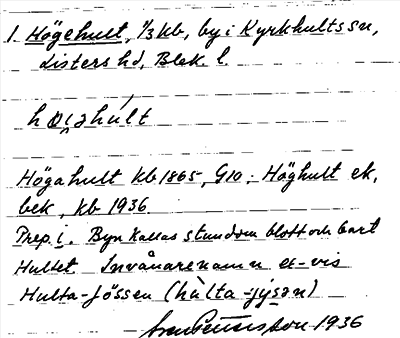 1. Högehult, 1/3 kb, by i Kyrkhults sn,
Listers hd, Blek. l.
Högahult kb 1865, G10; Höghult ek,
bek, kb 1936
Prep. i. Byn kallas stundom blott och bart
Hultet Invånarenamn ex-vis
Hulta-Jössen (hùlta-jýsən)
1936